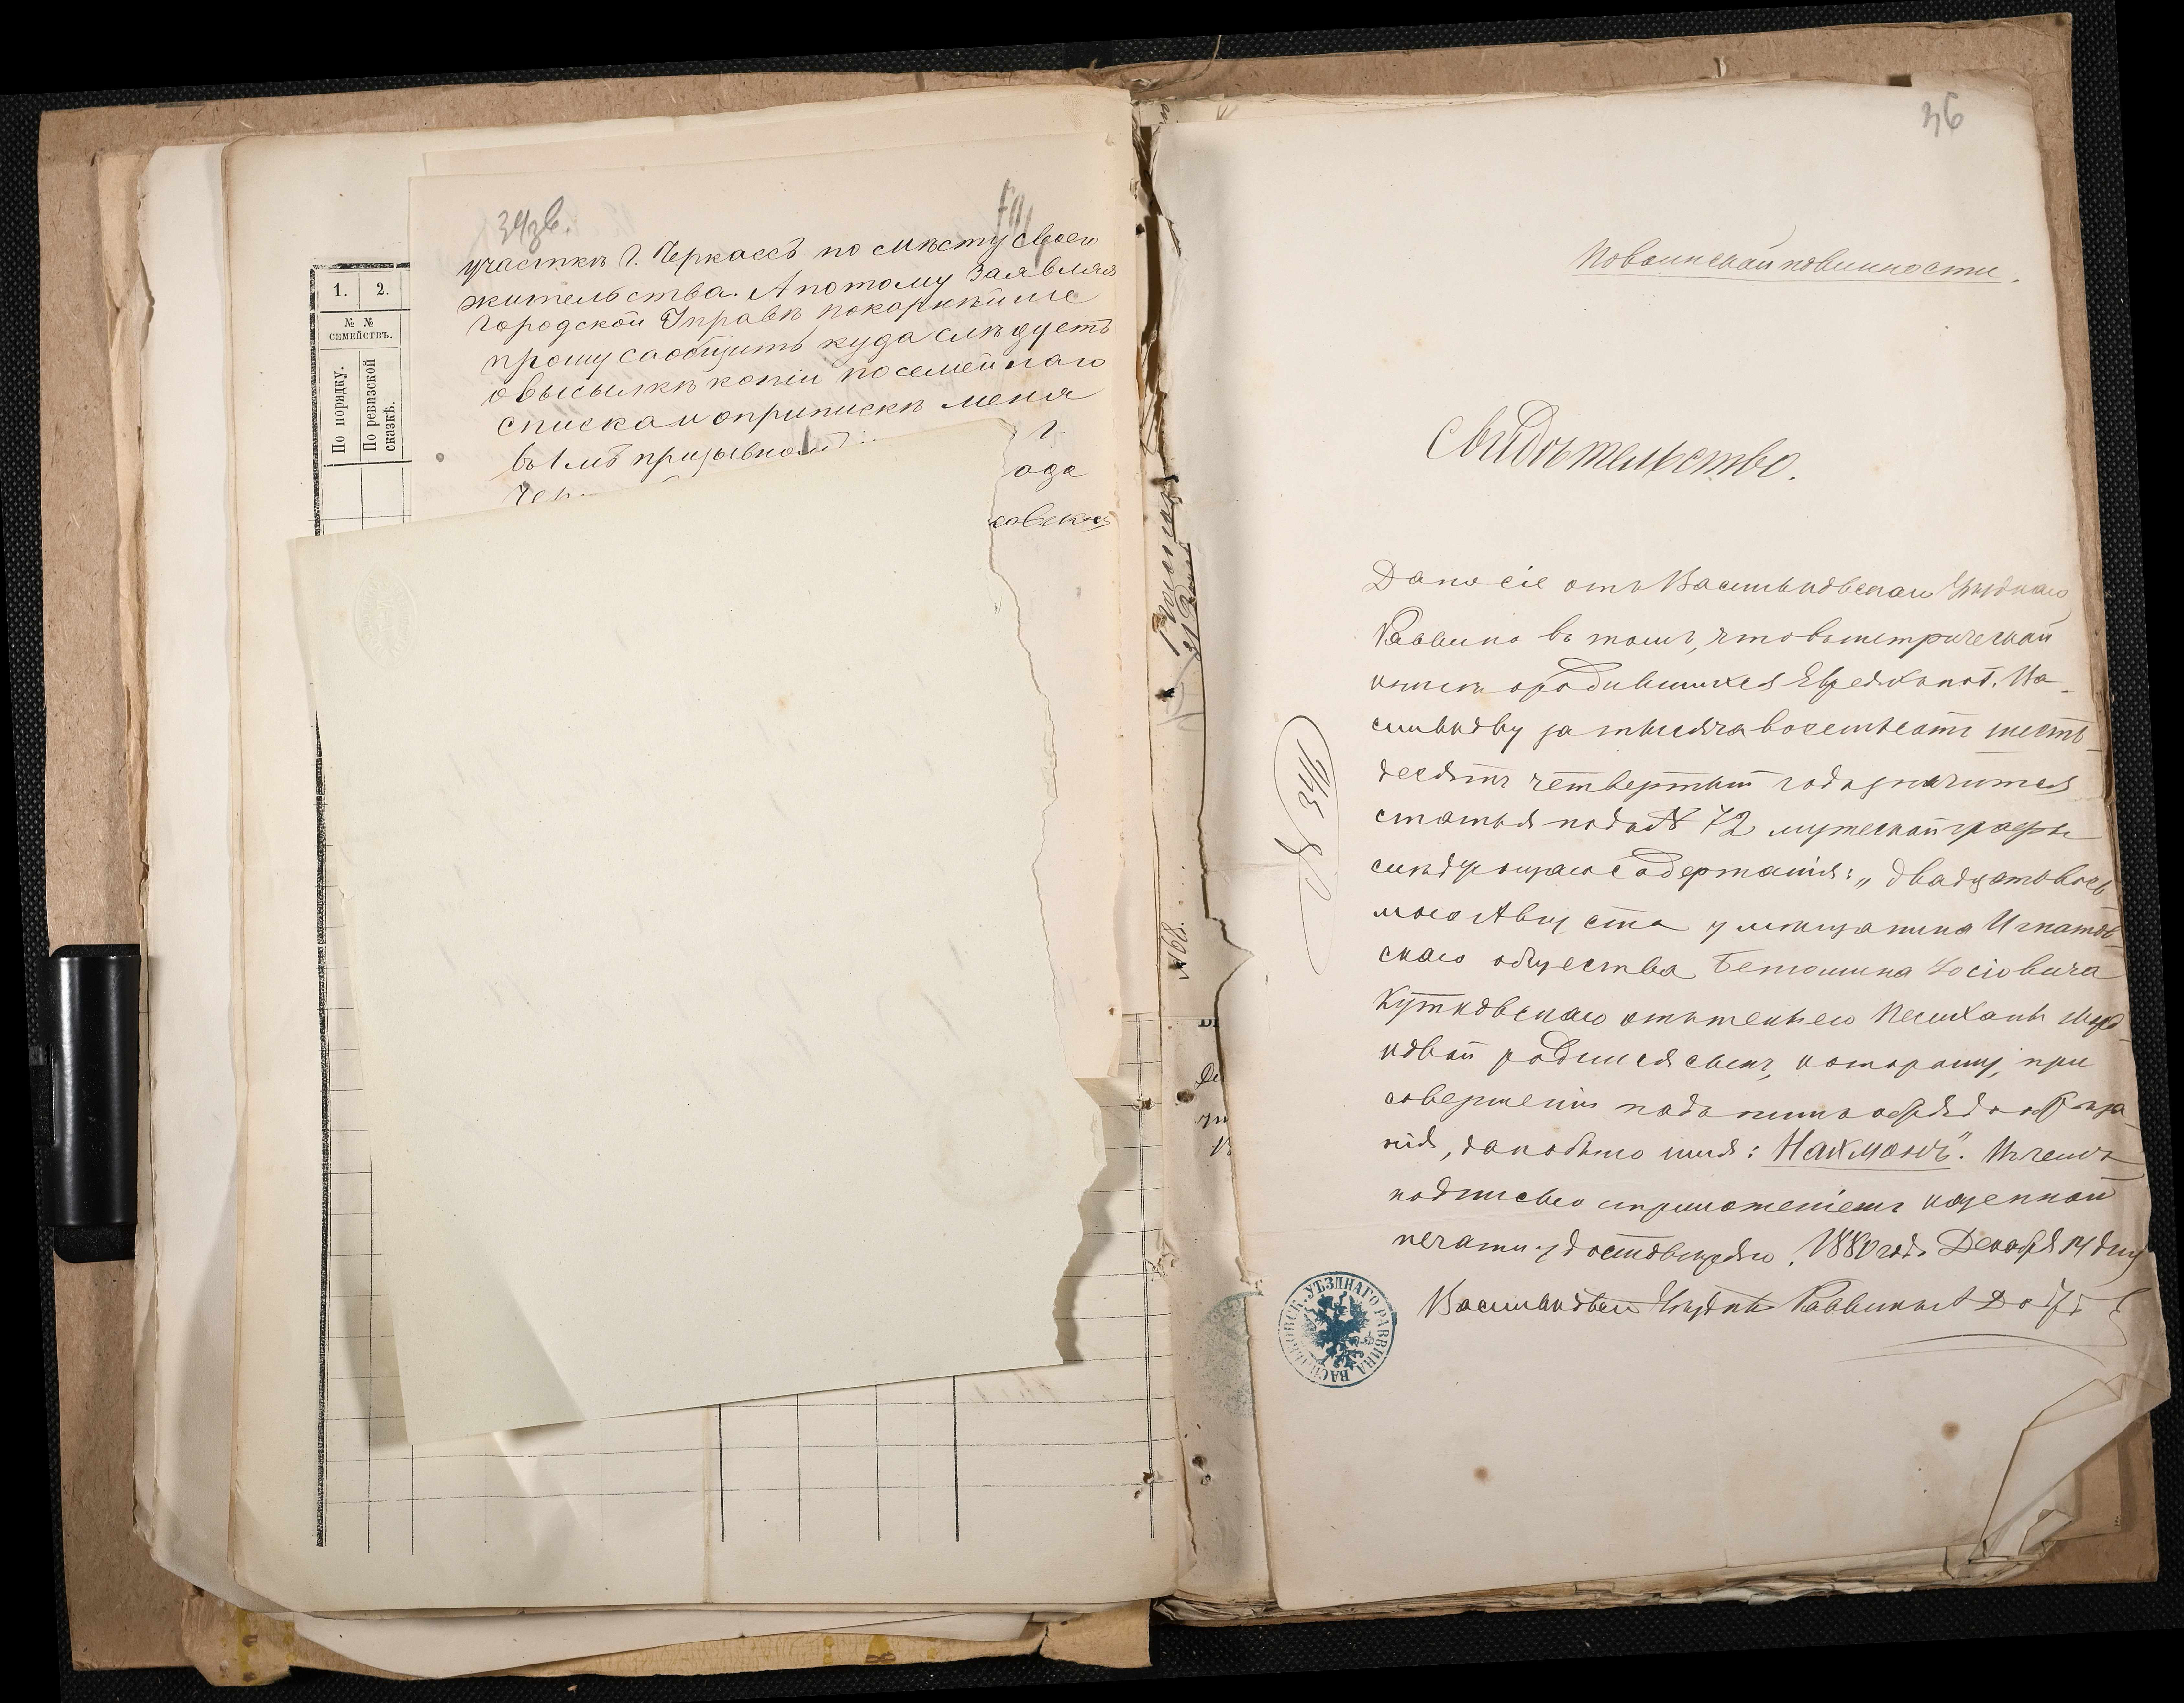 участкѣ г. Черкассъ по мѣсту своего
жительства. А потому заявляя
Городской Управѣ покорнѣйше
прошу сообщить куда слѣдуетъ
о высылкѣ копіи посемейнаго
списка и о припискѣ меня
въ 1мъ призывномъ
г.
ода
1.
2.
№ №
СЕМЕЙСТВЪ.
По порядку.
По ревизской
сказкѣ.
№ 68.
36
По воинской повинности.
Свидѣтельство.
Дано сіе отъ Васильковскаго Уѣзднаго
Раввина въ томъ, что въ метрической
книгѣ о родившихся Евреяхъ по г. Ва-
силькову за тысяча восемьсотъ шесть-
десятъ четвертый годъ значится
статья подъ № 72 мужеской графы
слѣдующаго содержанія: „двадцать вось-
маго Августа у мѣщанина Игнатов-
скаго общества Беньомина Іосіовича
Кутковскаго отъ жены его Песи Ханы
родился сынъ, которому, при
совершеніи надъ нимъ обряда обрѣза-
нія, дано было имя: Нахманъ". Въ чемъ
подписью и приложеніемъ казенной
печати удостовѣряю. 1880 года Декабря 14 дня
Васильковскій Уѣздный Раввинъ
ВАСИЛЬКОВСК. УѢЗДНАГО РАВВИНА